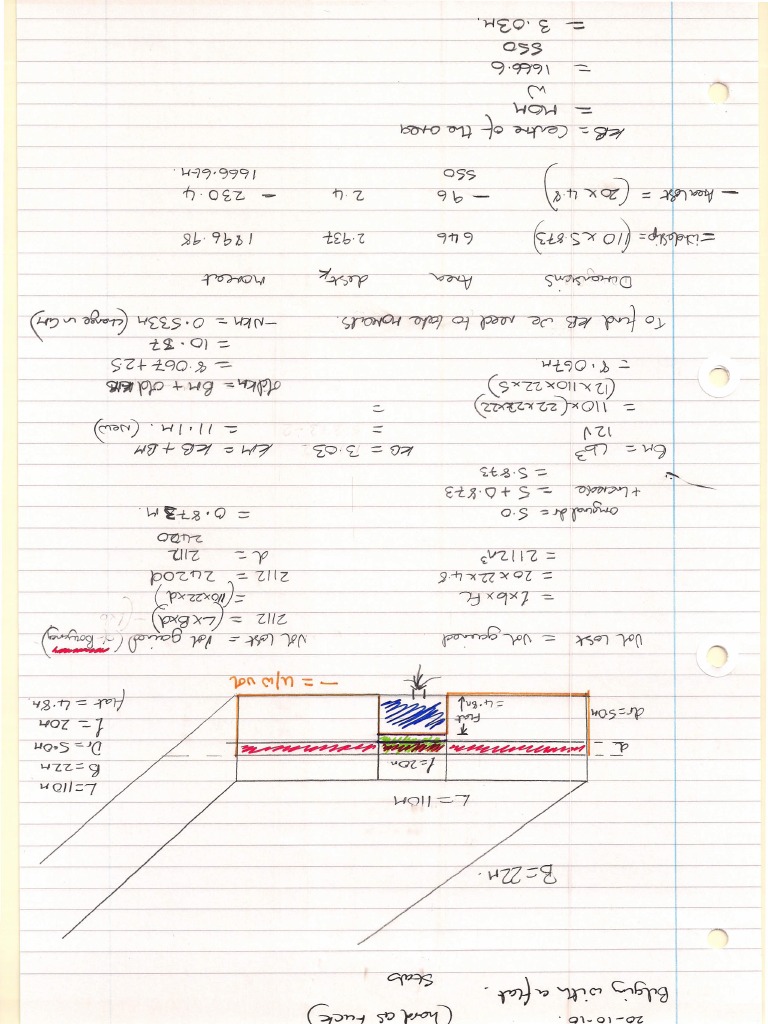 20-10-10. (hard as Fuck)
Bilging with a flat. Stabs
B=22m.
L=110m
L=110m
B=22m
Dr=5.0m
l=20m
flat=4.8m
l=20m
d
dr=5.0m
Flat
=4.8m
— = u/w vol
Vol lost = Vol gained
= l x b x FL
= 20 x 22 x 4.8
= 2112m³
Vol lost = Vol gained
2112 = (L x B x d)
= (110 x 22 x d)
2112 = 2420d
d = 2112
2420
= 0.873m.
original dr = 5.0
+ increase = 5 + 0.873
= 5.873
BM = LB³
12V
= 110 x (22x22x22)
(12 x 110 x 22 x 5)
= 8.067m
KB = 3.03
=
=
KM = KB + BM
= 11.1m. (new)
old KM = BM + old KB
= 8.067 + 2.5
= 10.57
- NKM = 0.533m (change in GM)
To find KB we need to take moments.
Dimensions Area dist K moment
= (110 x 5.873) 646 2.937 1896.98
- Area lost = (20 x 4.8) - 96 2.4 - 230.4
550 1666.61m.
KB = Centre of the area
= MOM
W
= 1666.6
550
= 3.03m.